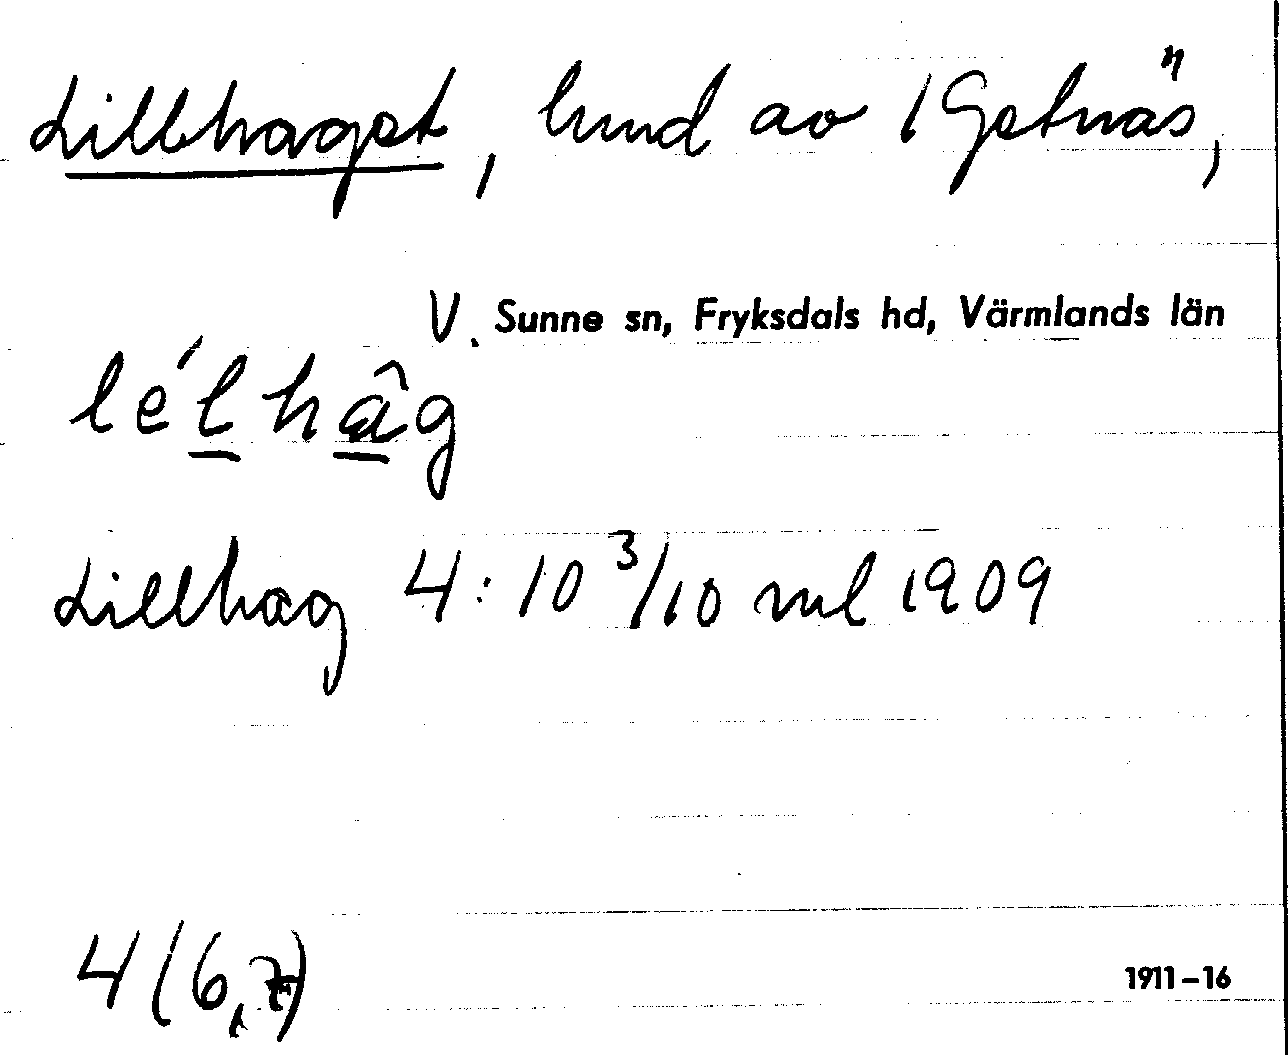 Lillhaget, lund av 1 Getnäs,
V. Sunne sn, Fryksdals hd, Värmlands län
le´lhâg
Lillhag 4:10 3/10 ml 1909
4 (6,7)
1911–16